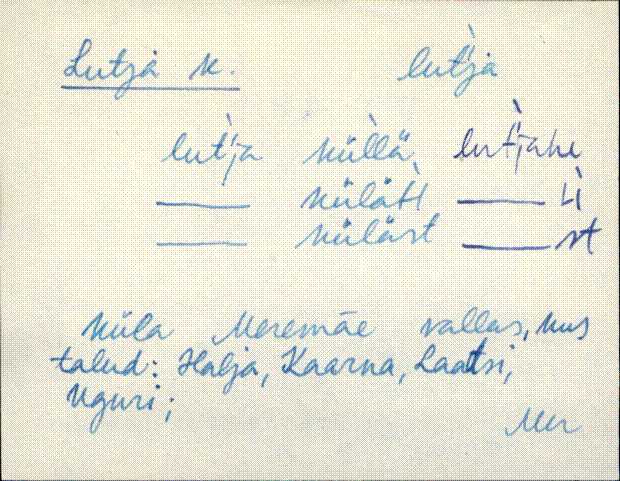 Lutja k. lut'ja
lut'ja küllä, lut'jahe
——— külätt ——— tt
——— küläst ——— st
Küla Meremäe vallas, kus
talud: Halja, Kaarna, Laatsi,
Uguri;
Mer